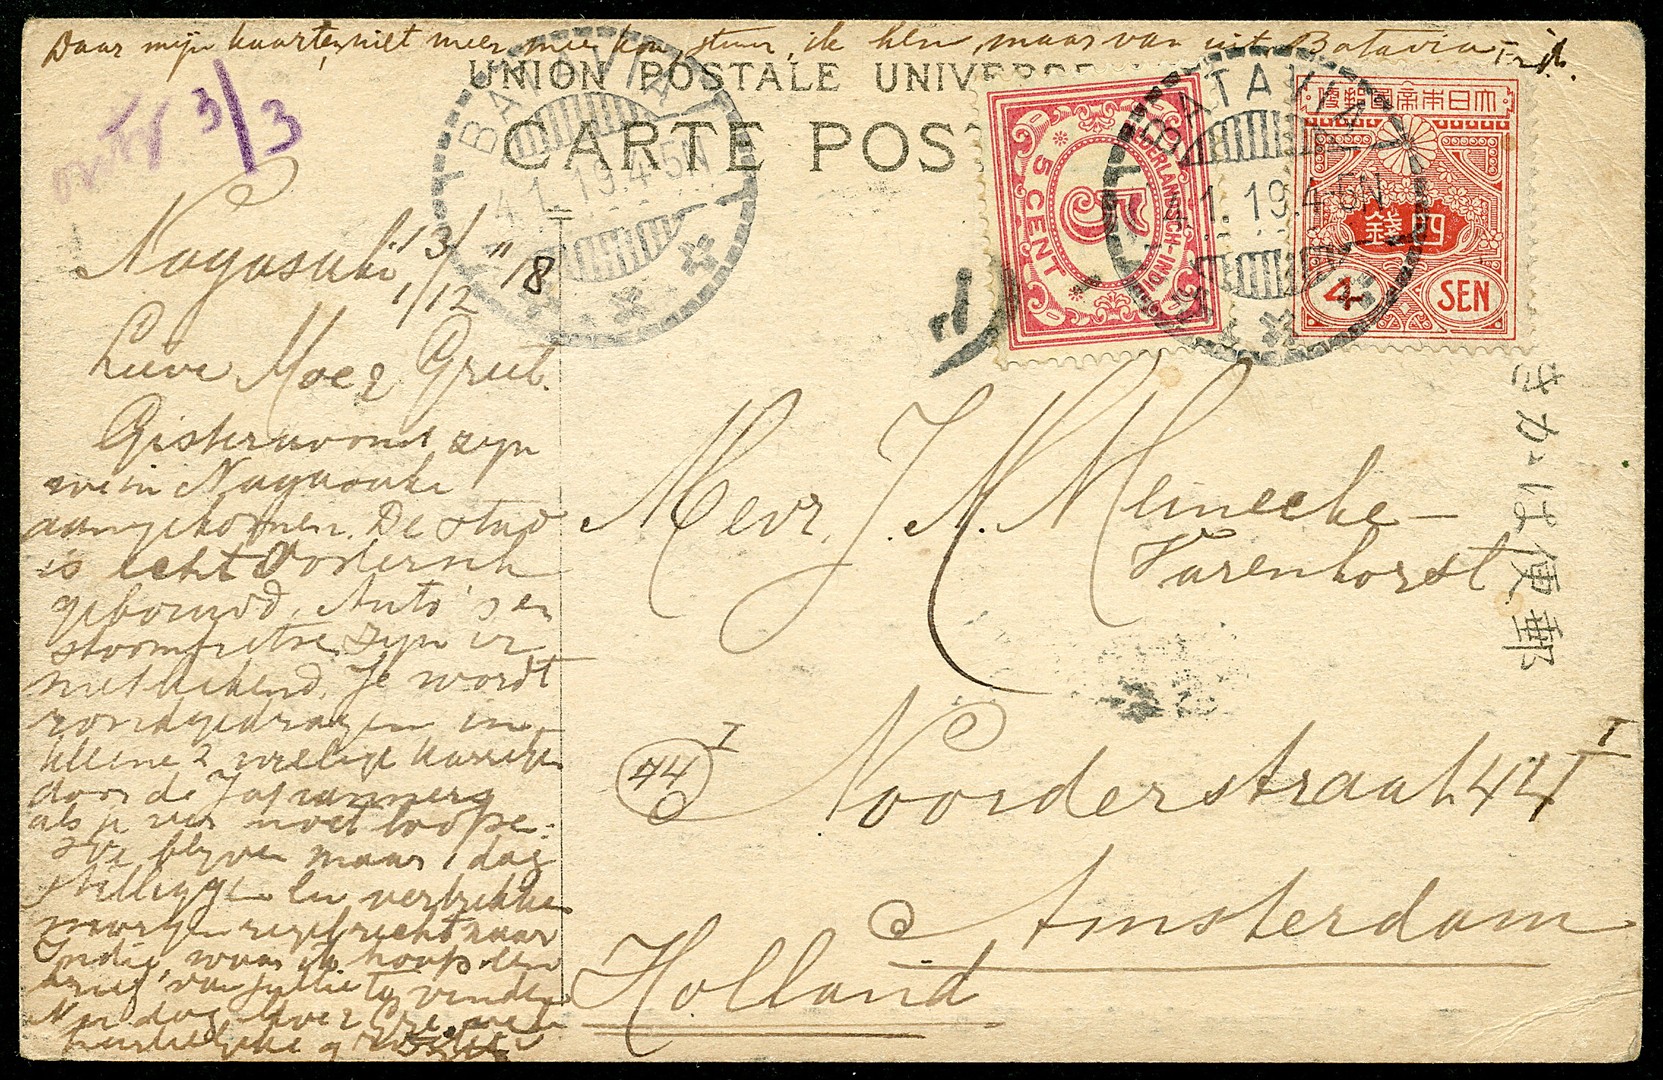 Daar mijn kaarten niet meer mee kon, stuur ik hen maar van uit Batavia
UNION POSTALE UNIVERSELLE
CARTE POS
3/3
BATAVIA
4.1.19.4-5N
BATAVIA
4.1.19.4-5N
NEDERLANDSCH-INDIË
5 CENT
5
大日本帝國郵便
四錢
4 SEN
きかは便郵
Nagasaki 13/12 "18
1/
Lieve Moe & Greet.
Gisteravond zijn
we in Nagasaki
aangekomen. De stad
is echt Oostersch
gebouwd. Auto's en
stoomfietsen zijn er
niet bekend. Je wordt
rondgedragen in
kleine 2 wielige karretjes
door de Japanners
als je ver moet loope.
We blijven maar 1 dag
stilliggen en vertrekken
morgen regelrecht naar
Indië, waar ik hoop een
brief van jullie te vinden
Nu dag Moe & Gre veel
hartelijke gr
Mevr. J. M. Meinecke-
Varenhorst
Noorderstraat 44 I
44 I
Amsterdam
Holland